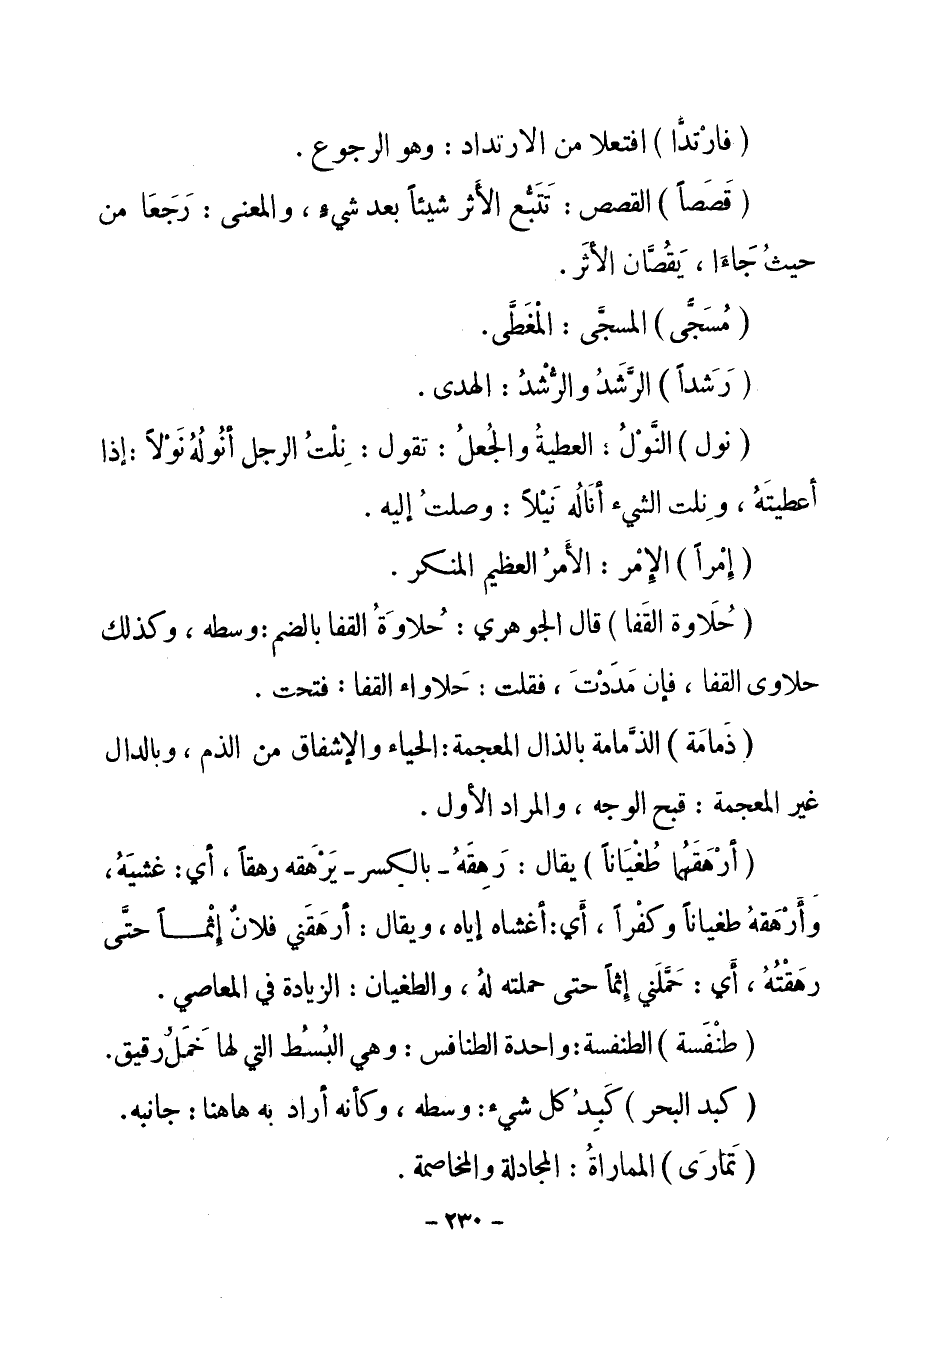 ( فارْتدَّا ) افتعلا من الارتداد : وهو الرجوع .
( قَصَصاً ) القصص : تَتَبُّع الأَثر شيئاً بعد شيء ، والمعنى : رَجَعَا من
حيثُ جَاءَا ، يَقُصَّان الأثَر .
( مُسَجًّى ) المسجَّى : الْمُغَطَّى .
( رَشداً ) الرَّشَدُ والرُّشْدُ : الهدى .
( نول ) النَّوْلُ : العطيةُ والجُعلُ : تقول : نِلْتُ الرجل أنُولُهُ نَوْلاً : إذا
أعطيتَهُ ، ونِلت الشيء أنَالُه نَيْلاً : وصلتُ إليه .
( إمْراً ) الإمْر : الأَمرُ العظيم المنكر .
( حُلَاوة القَفا ) قال الجوهري : حُلاوَةُ القفا بالضم : وسطه ، وكذلك
حلاوى القفا ، فإن مَدَدْتَ ، فقلت : حَلاواء القفا : فتحت .
( ذَمامَة ) الذَّمامة بالذال المعجمة : الحياء والإشفاق من الذم ، وبالدال
غير المعجمة : قبح الوجه ، والمراد الأول .
( أرْهَقَهُما طُغْيَاناً ) يقال : رَهِقَهُ ـ بالكسر ـ يَرْهَقه رهقاً ، أي : غشيَهُ ،
وَأَرْهَقهُ طغياناً وكفْراً ، أَي : أغشاه إياه ، ويقال : أرهَقَني فلانٌ إثْمـــاً حتَّى
رهَقْتُهُ ، أَي : حَمَّلَني إثماً حتى حملته لهُ ، والطغيان : الزيادة في المعاصي .
( طنْفَسة ) الطنفسة : واحدة الطنافس : وهي البُسُط التي لها خَمَلٌ رقيق .
( كبد البحر ) كَبِدُ كل شيء : وسطه ، وكأنه أراد به هاهنا : جانبه .
( تَمارَى ) المماراةُ : المجادلة والمخاصمة .
- ٢٣٠ -